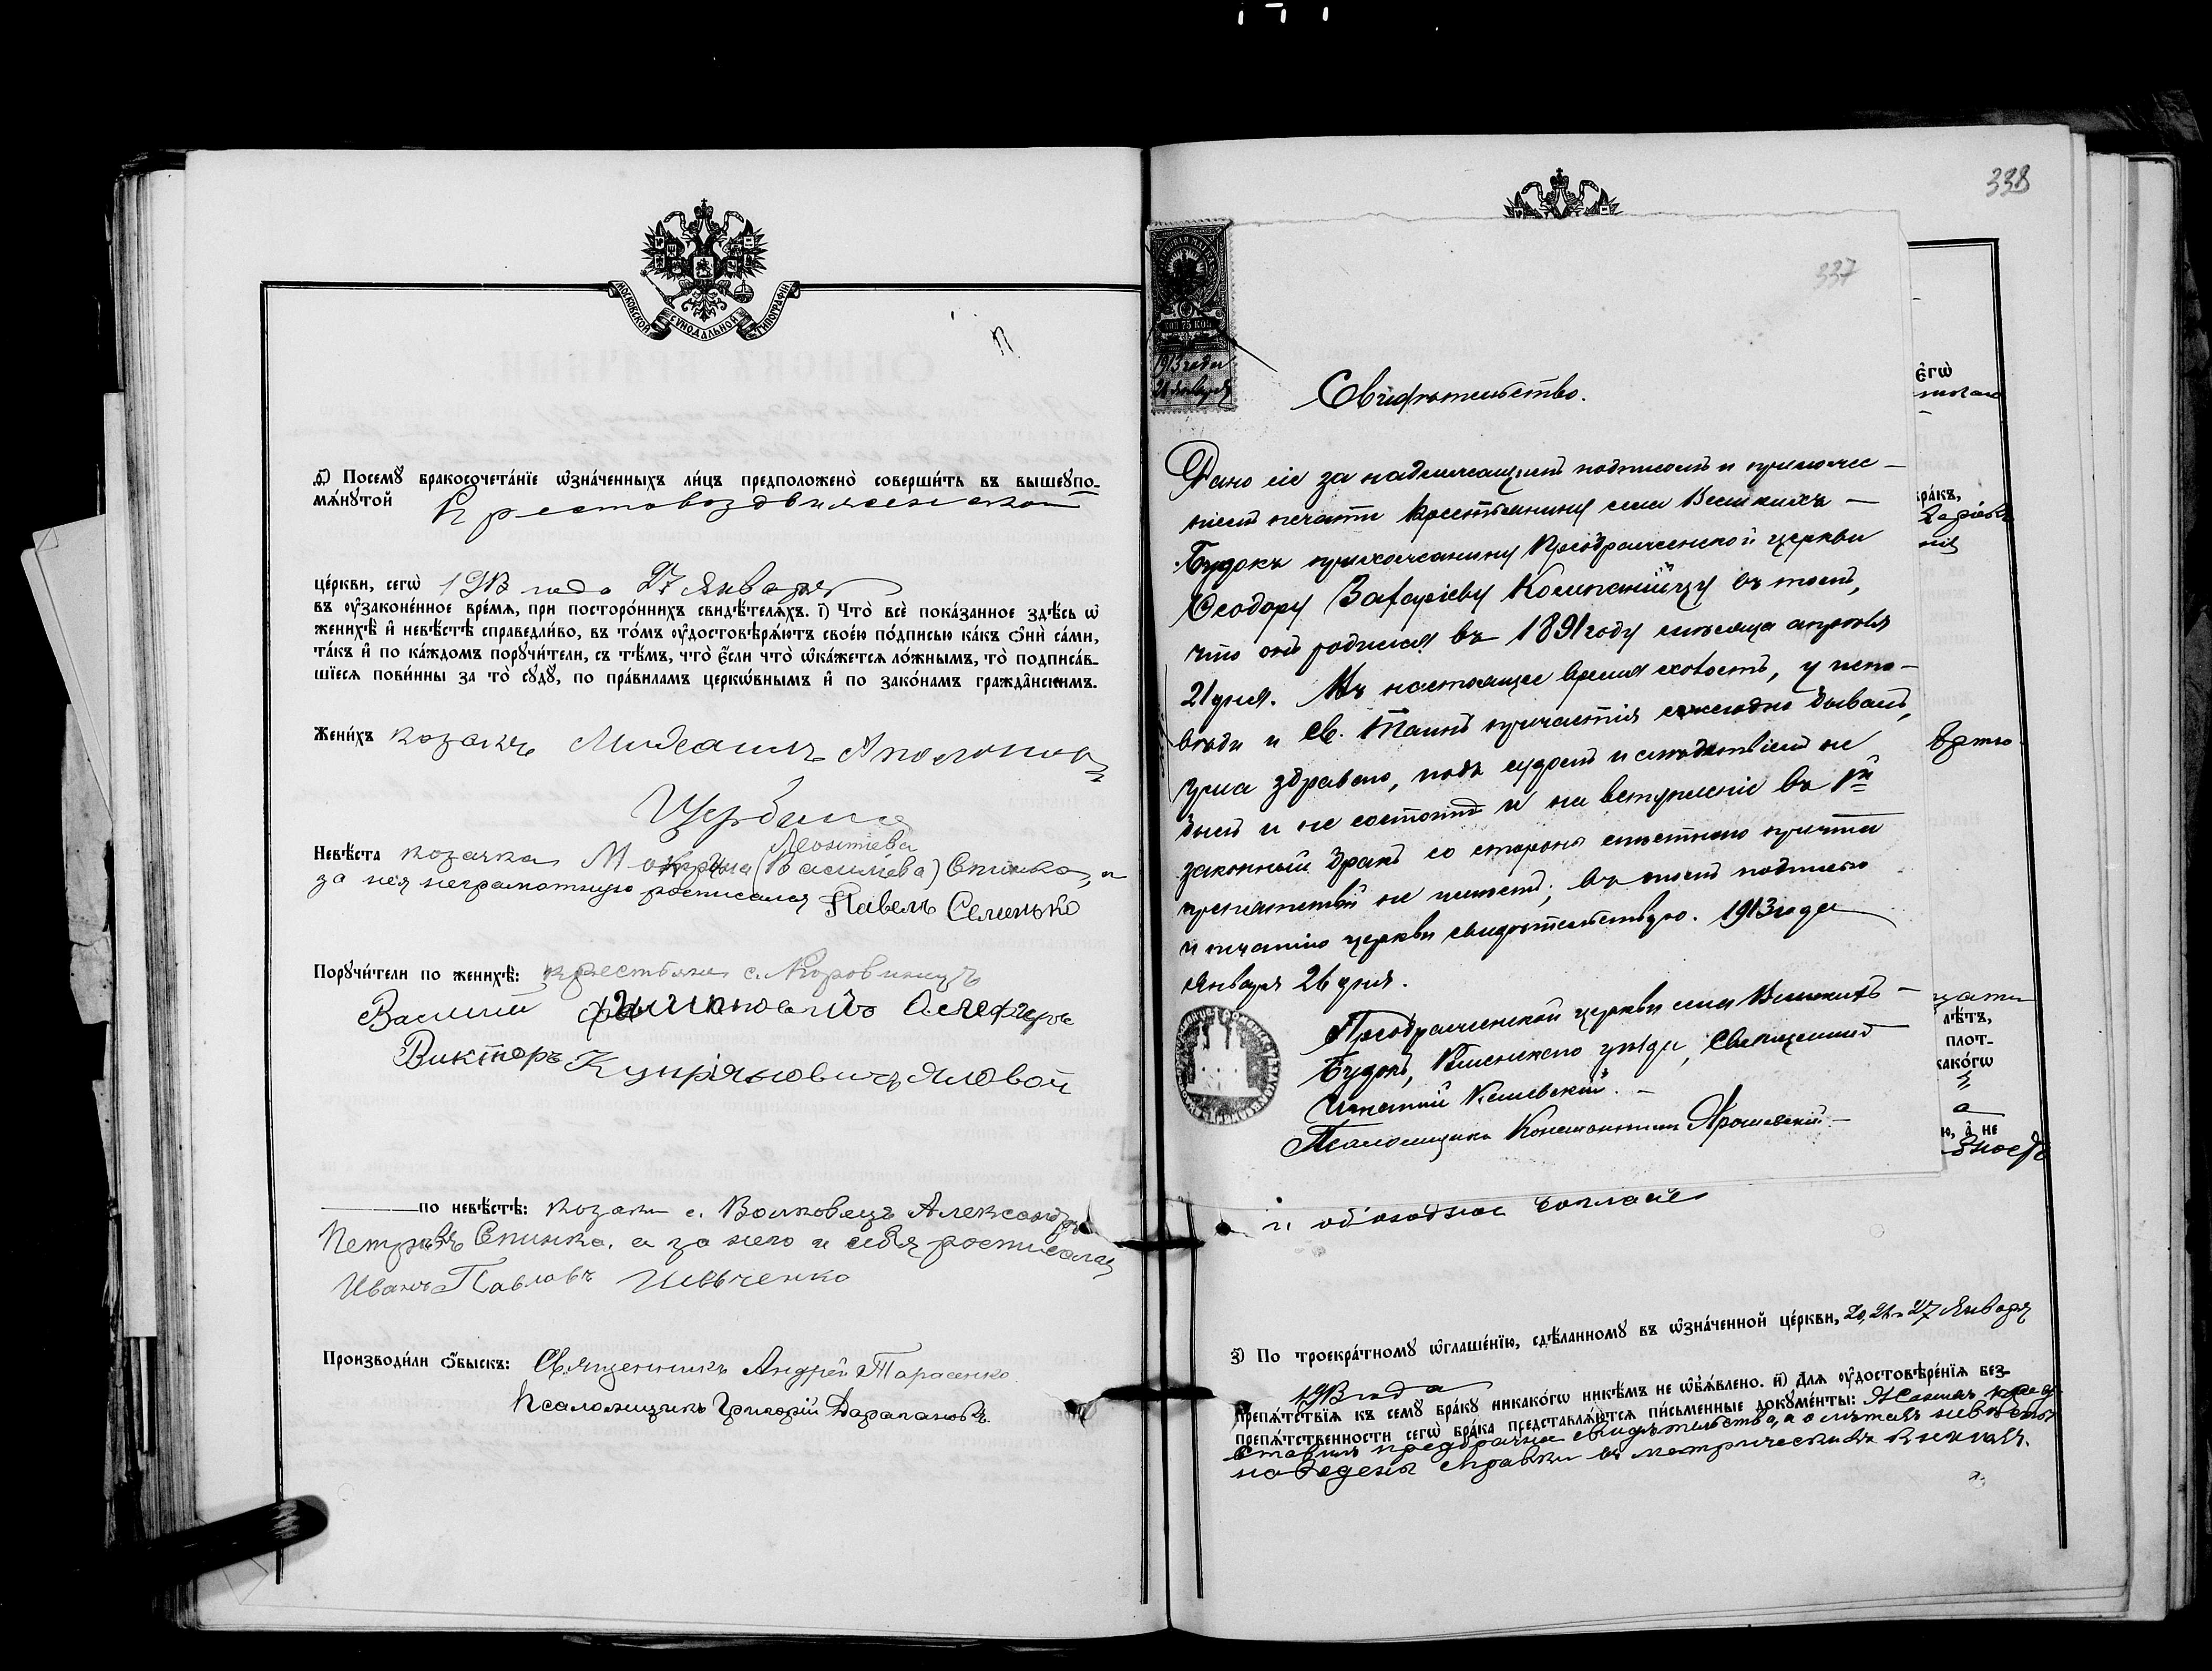 МОСКОВСКОЙ СѴНОДАЛЬНОЙ ТИПОГРАФІИ
Ѳ҃) Посемꙋ̀ бракосочета́нїе ѡ҆зна́ченныхъ ли́цъ предположено̀ соверши́ть въ вышеꙋпо-
мѧ́нꙋтой Крестовоздвиженской
це́ркви, сегѡ̀ 1913 года 27 Января
въ ᲂу҆зако́ненное вре́мѧ, при посторо́ннихъ свидѣ́телѧхъ. і҃) Что̀ всѐ пока́занное здѣ́сь ѡ҆
женихѣ̀ и҆ невѣ́стѣ справедли́во, въ то́мъ ᲂу҆достовѣрѧ́ютъ свое́ю по́дписью ка́къ ѻ҆нѝ са́ми,
та́къ и҆ по ка́ждомъ порꙋчи́тели, съ тѣ́мъ, что̀ є҆́сли что̀ ѡ҆ка́жетсѧ ло́жнымъ, то̀ подписа́в-
шїесѧ пови́нны за то̀ сꙋдꙋ̀, по пра́виламъ церкѡ́внымъ и҆ по зако́намъ гражда̑нскимъ.
Жени́хъ козакъ Михаилъ Аполоновъ
Щербина
Леонтіева
Невѣ́ста козачка Мокрина (Васильева) Спинка, а
за нея неграмотную росписался Павелъ Семенько
Порꙋчи́тели по женихѣ̀: крестьяне с. Коровинцъ
Василий
Викторъ Купріяновичъ Яловой
по невѣ́стѣ: козаки с. Волковецъ Александръ
Петровъ Спинка, а за него и себя росписался
Иванъ Павловъ Шевченко
Производи́ли ѻ҆́быскъ: Священникъ Андрей Тарасенко
Псаломщикъ Григорій Дараганъ
338
337
КОП 75 КОП
1913 года
26 Января
Свидѣтельство.
Дано сіе за надлежащимъ подписомъ и приложе-
ніемъ печати крестьянину села Великихъ -
Будокъ прихожанину Преображенской церкви
Ѳеодору Захаріеву Компанійцу въ томъ,
что онъ родился въ 1891 году мѣсяца апрѣля
21 дня. Въ настоящее время холостъ, у испо-
вѣди и Св. Таинъ причастія ежегодно бываетъ,
ума здраваго, подъ судомъ и слѣдствіемъ не
былъ и не состоитъ и на вступленіе въ 1й
законный бракъ со стороны мѣстнаго причта
препятствій не имѣетъ; въ томъ подписью
и печатію церкви свидѣтельствую. 1913 года
Января 26 дня.
Преображенской церкви села Великихъ -
Будокъ, Роменскаго уѣзда, Священникъ
Игнатий
Псаломщикъ Константинъ Ярошевскій
є҆гѡ̀
бра́къ,
лѣ́тъ,
плот-
како́гѡ
ю, а҆ не
и обоюдное согласіе
з҃) По троекра́тномꙋ ѡ҆глаше́нїю, сдѣ́ланномꙋ въ ѡ҆зна́ченной це́ркви, 20, 26 и 27 Января
1913 года
препѧ́тствїѧ къ семꙋ̀ бра́кꙋ никако́гѡ никѣ́мъ не ѡ҆б̾ѧ́влено. и҃) Длѧ ᲂу҆достовѣре́нїѧ без-
препѧ́тственности сегѡ̀ бра́ка представлѧ́ютсѧ пи́сьменные докꙋме́нты: Женихъ пред-
ставилъ предбрачное свидѣтельство, а о лѣтахъ невѣсты
наведены справки въ метрическихъ книгахъ.